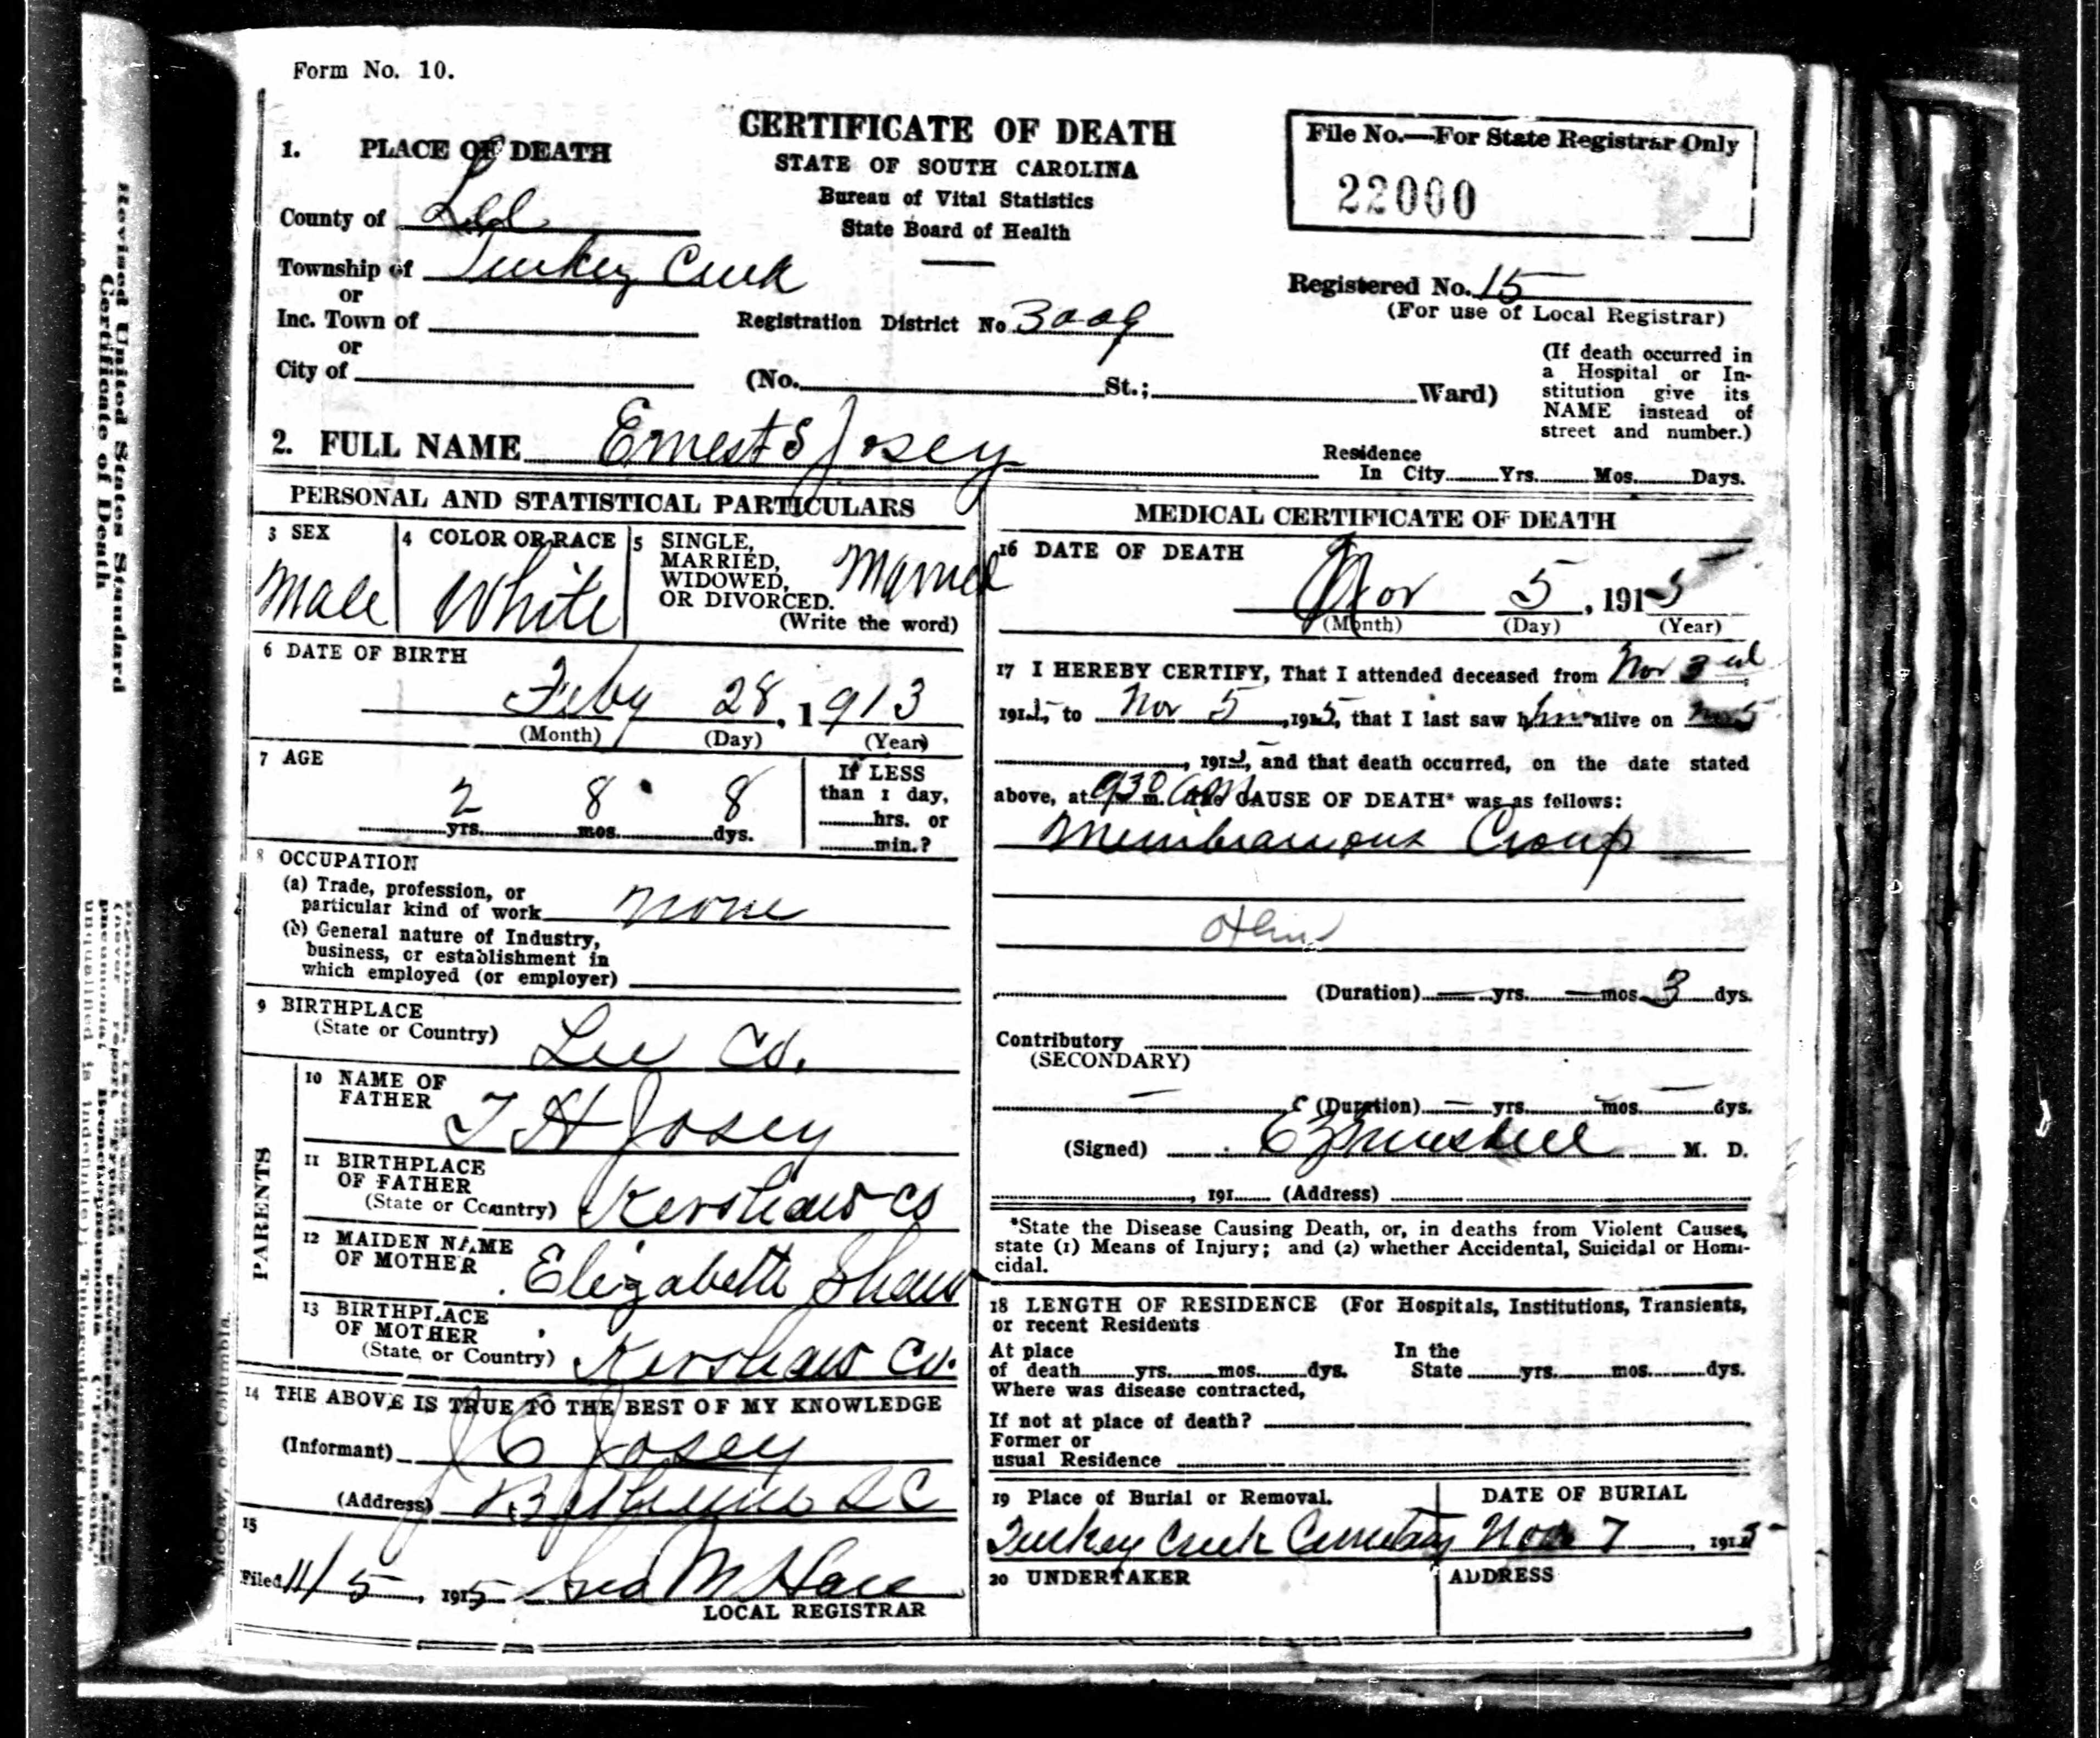 Form No. 10.
CERTIFICATE OF DEATH
STATE OF SOUTH CAROLINA
Bureau of Vital Statistics
State Board of Health
File No.—For State Registrar Only
22000
1. PLACE OF DEATH
County of Lee
Township of Turkey Creek
or
Inc. Town of
or
City of
Registration District No 3009
Registered No. 15
(For use of Local Registrar)
(No. St.; Ward)
(If death occurred in
a Hospital or In-
stitution give its
NAME instead of
street and number.)
2. FULL NAME Ernest S Josey
Residence
In City Yrs. Mos. Days.
PERSONAL AND STATISTICAL PARTICULARS
3 SEX
Male
4 COLOR OR RACE
White
5 SINGLE,
MARRIED,
WIDOWED,
OR DIVORCED.
(Write the word)
Married
6 DATE OF BIRTH
Feby 28, 1913
(Month) (Day) (Year)
7 AGE
2 yrs. 8 mos. 8 dys.
If LESS
than 1 day,
hrs. or
min.?
8 OCCUPATION
(a) Trade, profession, or
particular kind of work none
(b) General nature of Industry,
business, or establishment in
which employed (or employer)
9 BIRTHPLACE
(State or Country) Lee Co.
PARENTS
10 NAME OF
FATHER T H Josey
11 BIRTHPLACE
OF FATHER
(State or Country) Kershaw Co
12 MAIDEN NAME
OF MOTHER Elizabeth Shaw
13 BIRTHPLACE
OF MOTHER
(State or Country) Kershaw Co.
14 THE ABOVE IS TRUE TO THE BEST OF MY KNOWLEDGE
(Informant) J C Josey
(Address) Bethune S C
15
Filed 11/5, 1915 Geo M Hall
LOCAL REGISTRAR
MEDICAL CERTIFICATE OF DEATH
16 DATE OF DEATH
Nov 5, 1915
(Month) (Day) (Year)
17 I HEREBY CERTIFY, That I attended deceased from Nov 3rd
1915, to Nov 5, 1915, that I last saw him alive on Nov 5
, 1915, and that death occurred, on the date stated
above, at 930 am. The CAUSE OF DEATH* was as follows:
Membranous Croup
(Duration) — yrs. — mos. 3 dys.
Contributory
(SECONDARY)
— (Duration) — yrs. — mos. — dys.
(Signed) M. D.
, 191 (Address)
*State the Disease Causing Death, or, in deaths from Violent Causes,
state (1) Means of Injury; and (2) whether Accidental, Suicidal or Homi-
cidal.
18 LENGTH OF RESIDENCE (For Hospitals, Institutions, Transients,
or recent Residents
At place
of death yrs. mos. dys.
In the
State yrs. mos. dys.
Where was disease contracted,
If not at place of death?
Former or
usual Residence
19 Place of Burial or Removal.
Turkey Creek Cemetary
DATE OF BURIAL
Nov 7, 1915
20 UNDERTAKER
ADDRESS
Revised United States Standard
Certificate of Death